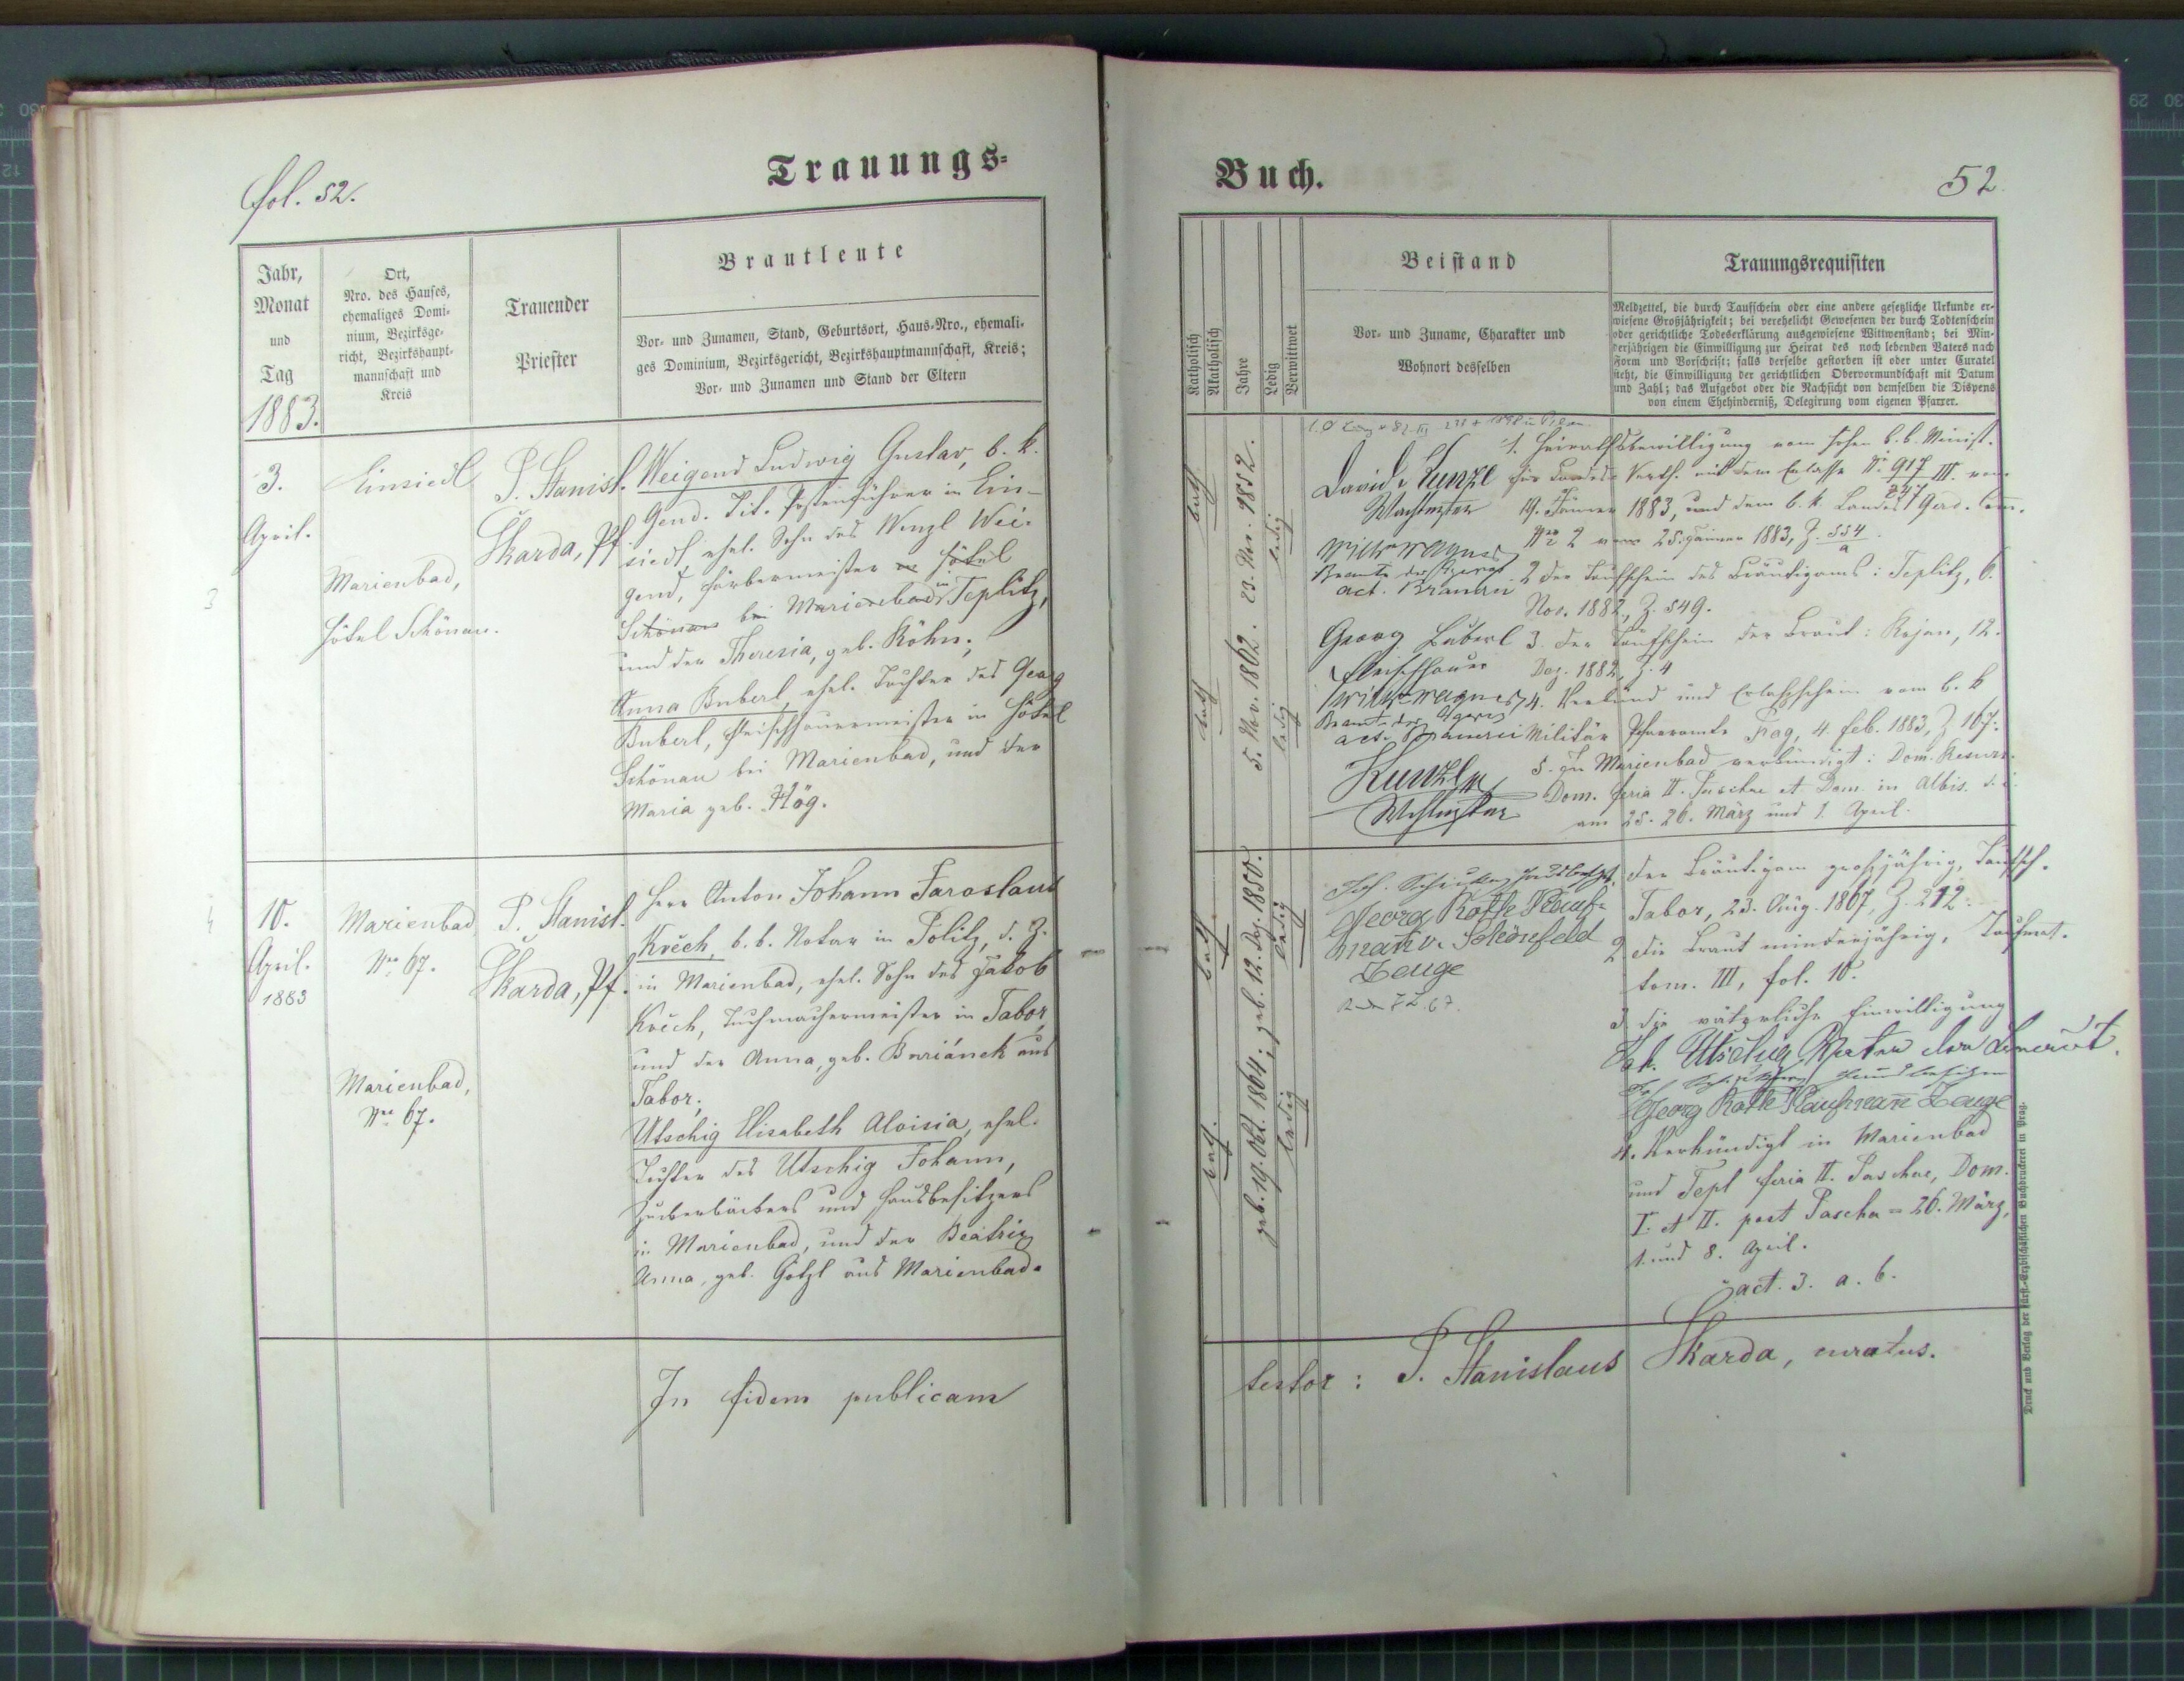 fol. 52.
Trauungs-
Jahr,
Monat
und
Tag
1883.
Ort,
Nro. des Hauses,
ehemaliges Domi-
nium, Bezirksge-
richt, Bezirkshaupt-
mannschaft und
Kreis
Trauender
Priester
Brautleute
Vor- und Zunamen, Stand, Geburtsort, Haus-Nro., ehemali-
ges Dominium, Bezirksgericht, Bezirkshauptmannschaft, Kreis;
Vor- und Zunamen und Stand der Eltern
3
3.
April.
Einsiedl
Marienbad,
Hôtel Schönau.
P. Stanisl.
Škarda, Pf.
Weigend Ludwig Gustav, k. k.
Gend. Tit. Postenführer in Ein-
siedl, ehel. Sohn des Wenzl Wei-
gend, Färbermeister in Hôtel
Schönau bei Marienbad in Teplitz,
und der Theresia, geb. Röhn;
Anna Buberl, ehel. Tochter des Georg
Buberl, Fleischhauermeister in Hôtel
Schönau bei Marienbad, und der
Maria geb. Hög.
4
10.
April.
1883
Marienbad
Nro 67.
Marienbad,
Nro 67.
P. Stanisl.
Škarda, Pf.
Herr Anton Johann Jaroslaus
Křéch, k. k. Notar in Politz, d. Z.
in Marienbad, ehel. Sohn des Jakob
Křéch, Tuchmachermeister in Tabor,
und der Anna, geb. Buriánek aus
Tabor;
Utschig Elisabeth Aloisia, ehel.
Tochter des Utschig Johann,
Zuckerbäckers und Hausbesitzers
in Marienbad, und der Beatrix
Anna, geb. Götzl aus Marienbad.
In fidem publicam
Buch.
52.
Katholisch
Akatholisch
Jahre
Ledig
Verwittwet
Beistand
Vor- und Zuname, Charakter und
Wohnort desselben
Trauungsrequisiten
Meldzettel, die durch Taufschein oder eine andere gesetzliche Urkunde er-
wiesene Großjährigkeit; bei verehelicht Gewesenen der durch Todtenschein
oder gerichtliche Todeserklärung ausgewiesene Wittwenstand; bei Min-
derjährigen die Einwilligung zur Heirat des noch lebenden Vaters nach
Form und Vorschrift; falls derselbe gestorben ist oder unter Curatel
steht, die Einwilligung der gerichtlichen Obervormundschaft mit Datum
und Zahl; das Aufgebot oder die Nachsicht von demselben die Dispens
von einem Ehehinderniß, Delegirung vom eigenen Pfarrer.
kath.
23. Dez. 1852.
ledig
kath.
5. Nov. 1862.
ledig
David Kunzl
Wachtmeister
Georg Buberl
Fleischhauer
Kunzl
Wachtmeister
1. Heirathsbewilligung vom hohen k. k. Minist.
für Landes-Verth. mit dem Erlasse No 917 III. vom
19. Jänner 1883, und dem k. k. Landes Gend. Com.
Nro 2 vom 25. Jänner 1883, Z. 554
a
2 der Taufschein des Bräutigams: Teplitz, 6.
Nov. 1882, Z. 549.
3. der Taufschein der Braut: Rojan, 12.
Dez. 1882, Z. 4
4. Verkünd und Erlaßschein vom k. k.
Militär Pfarramte Prag, 4. Feb. 1883, Z. 167.
5. In Marienbad verkündigt: Dom. Resurr.
Dom. feria II. Paschae et Dom. in Albis. d. i.
am 25. 26. März und 1. April.
kath.
geb. 12. Dez. 1850.
ledig
kath.
geb. 19. Okt. 1864;
ledig
Georg Roth Kauf-
mann v. Schönfeld
Zeuge
der Bräutigam großjährig, Taufsch.
Tabor, 23. Aug. 1867, Z. 212.
2 die Braut minderjährig, Taufmat.
tom. III, fol. 10.
3 die väterliche Einwilligung
Joh. Utschig Vater der Braut.
Georg Roth Kaufmann Zeuge
4. Verkündigt in Marienbad
und Tepl feria II. Paschae, Dom.
I. et II. post Pascha = 26. März,
1. und 8. April.
act. 3. a. b.
testor: P. Stanislaus Škarda, curatus.
Druck und Verlag der fürst-erzbischöflichen Buchdruckerei in Prag.